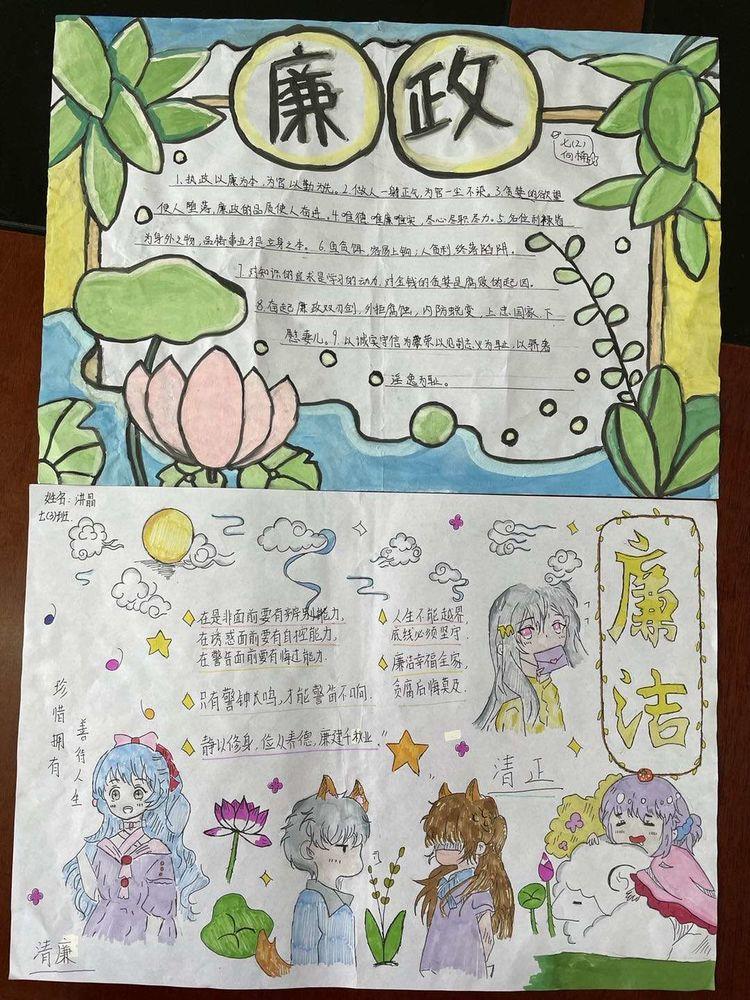 廉政
七(2)
1.执政以廉为本,为官以勤为先。2.做人一身正气,为官一尘不染。3.贪婪的欲望
使人堕落,廉政的品质使人奋进。4.唯德唯廉唯实,尽心尽职尽力。5.名位利禄皆
为身外之物,品格事业才是立身之本。6.鱼贪饵,容易上钩;人贪利,终落陷阱。
7.对知识的追求是学习的动力,对金钱的贪婪是腐败的起因。
8.奋起廉政双刃剑,外拒腐蚀,内防蜕变,上忠国家,下
慰妻儿。9.以诚实守信为荣以见利忘义为耻,以骄奢
淫逸为耻。
姓名:洪晶
七(3)班
廉洁
在是非面前要有辨别能力,
在诱惑面前要有自控能力,
在警告面前要有悔过能力.
只有警钟长鸣,才能警笛不响.
静以修身,俭以养德,廉建千秋业"
人生不能越界,
底线必须坚守.
廉洁幸福全家,
贪腐后悔莫及.
珍惜拥有
善待人生
清正
清廉